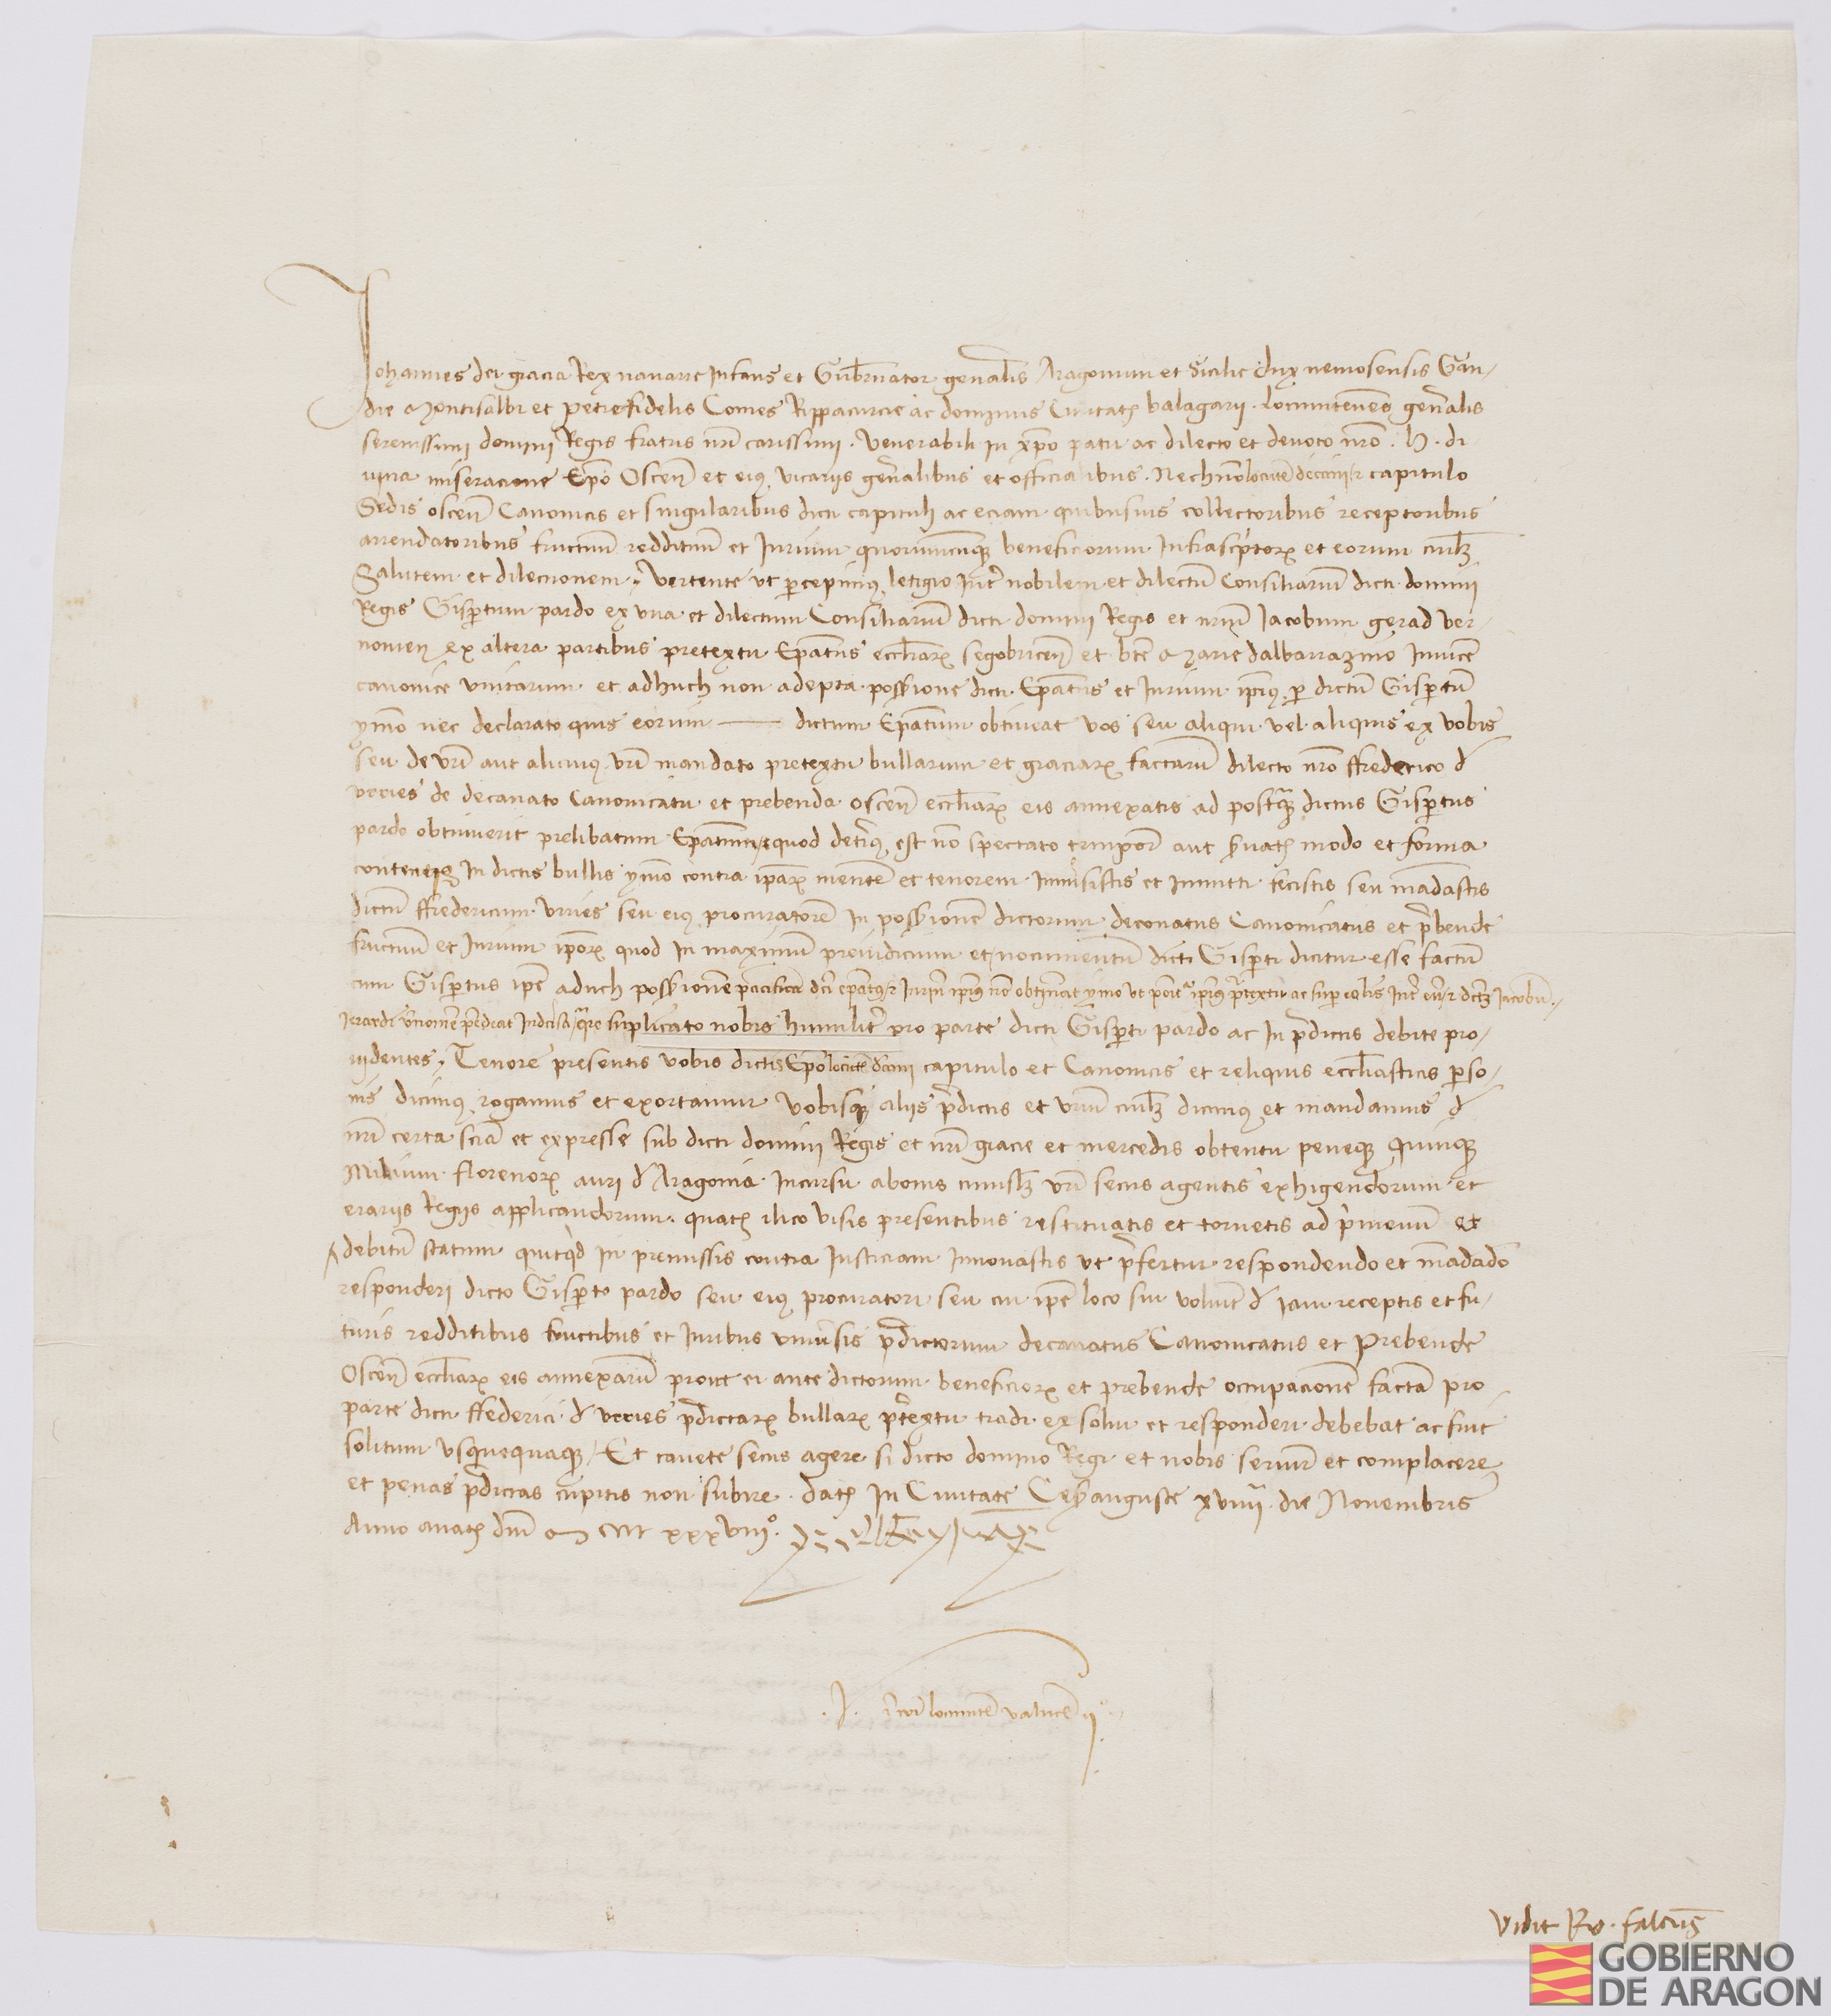 Johannes dei gracia Rex navarre Infans et Gub̄rnator gen̄alis Aragonum et Sicilie dux nemosensis Gan-
die Montisalbi et petrefidelis Comes Rippacurcie ac dominus Civitat̄ balagarii. locumtenens gen̄alis
serenissimi domini Regis fratris nr̄i carissimi. Venerabili in xp̄o patri ac dilecto et devoto nr̄o. H. di
vina miseracione Ep̄o Oscen̄ et eius vicariis gen̄alibus et officialibus. Nechno locūten̄ decani et capitulo
Sedis oscen̄ Canonicis et singularibus dicti capituli ac eciam quibusvis collectoribus receptoribus
arrendatoribus fructuum reddituum et Jurium quorumcumq̄ beneficiorum Infrascriptoꝝ et eorum cuilꝫ
Salutem et dilectionem. Vertente ut p̄cepimus letigio int̄ nobilem et dilectum Consiliarium dicti domini
Regis Gisp̄tum pardo ex una et dilectum Consiliarium dicti domini Regis et nr̄um Jacobum gerad ver-
nomen ex altera partibus pretextu Ep̄atus eccl̄iaꝝ segobricen̄ et bt̄e Marie dalbarrazino Invicē
canonice unitarum et adhuch non adepta poss̄ione dicti Ep̄atus et Jurium ip̄ius p̄ dictum Gisp̄tum
ymo nec declarato quis eorum —— dictum Ep̄atum obtineat vos seu aliqui vel aliquis ex vobis
seu de vr̄i aut alicuius vr̄i mandato pretextu bullarum et graciaꝝ factarum dilecto nr̄o ffrederico d
urries de decanato Canonicatu et prebenda oscen̄ eccl̄iaꝝ eis annexatis ad postq̄ dictus Gisp̄tus
pardo obtinuerit prelibatum Ep̄atum et quod deterius est nō spectato tempor̄ aut s̄vat̄ modo et forma
contentis In dictis bullis ymo contra ip̄aꝝ mentē et tenorem Immisistis et Immitti fecistis seu mādastis
dictū ffredericum Urries seu eius procuratorē In poss̄ionē dictorum deconatus Canonicatus et p̄bende
fructuum et Jurium ip̄oꝝ quod In maximum preiudicium et nocumentum dicti Gisp̄ti dicitur esse factum
cum Gisp̄tus ip̄e aduch poss̄ionem pacificā dc̄i ep̄atus et Juriū ip̄ius nō obtineat ymo ut ponit ip̄ius p̄textu ac sup̄ lis Int̄ eū et dctꝫ Jacobū
Jerardi v̄nomē pendeat Indecisa quare suplicato nobis humilit̄ pro parte dicti Gisp̄ti pardo ac In p̄dictis debite pro-
videntes. Tenore presentis vobis dictis Ep̄o locūt̄ dcani capitulo et Canonicis et reliquis eccl̄iasticis p̄so-
nis dicimus rogamus et exortamur vobisq̄ aliis p̄dictis et vr̄um cuilꝫ dicimus et mandamus d
nr̄i certa sciā et expresse sub dicti domini Regis et nr̄i gracie et mercedis obtentu peneq̄ quinq̄
Milium florenoꝝ auri d Aragonia Incursu abonis cuiuslꝫ vr̄i secus agentis exhigendorum et
erariis Regiis applicandorum. quat̄ ilico visis presentibus restituatis et tornetis ad p̄mevum et
debitū statum quitq̄d In premissis contra Justiciam Innovastis ut p̄fertur respondendo et mādādo
responderi dicto Gisp̄to pardo seu eius procuratori seu cui ip̄e loco sui voluīt d iam receptis et fu-
turis redditibus fructibus et Juribus univ̄sis p̄dictorum decanatus Canonicatus et Prebende
Oscen̄ eccl̄iaꝝ eis annexarum prout ei ante dictorum beneficioꝝ et prebende ocupacionē factā pro
parte dicti ffederici d urries p̄dictaꝝ bullaꝝ p̄textu tradi ex solvi et responderi debebat ac fuit
solitum usquequaq̄. Et cavete secus agere si dicto domino Regi et nobis servire et complacere
et penas p̄dictas cupitis non subire. Dat̄ In Civitate Ces̄auguste xviiii die Novembris
Anno anat̄ dn̄i M CCCC xxxviiiº.
Vidit Ro. falcus
GOBIERNO
DE ARAGON